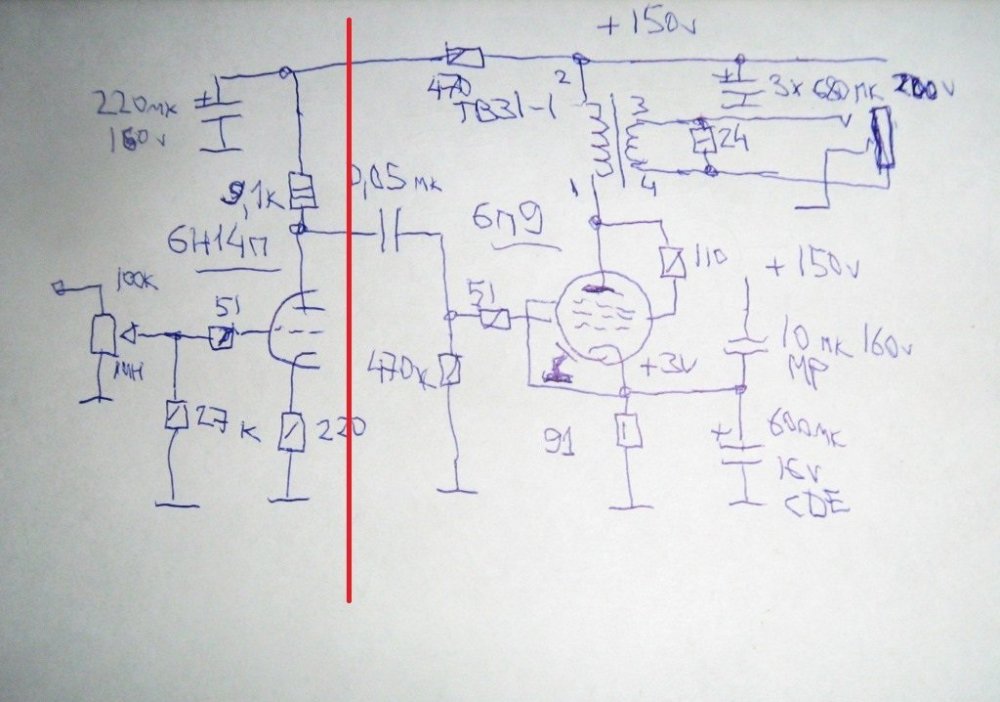 +150v
220мк
160v
470
ТВ31-1
2
3
3x 680мк 200v
24
4
1
9,1к
0,05 мк
6Н14п
6п9
110
+150v
100к
51
51
10 мк 160v
МР
470к
+3v
27 к
220
91
600мк
16v
CDE